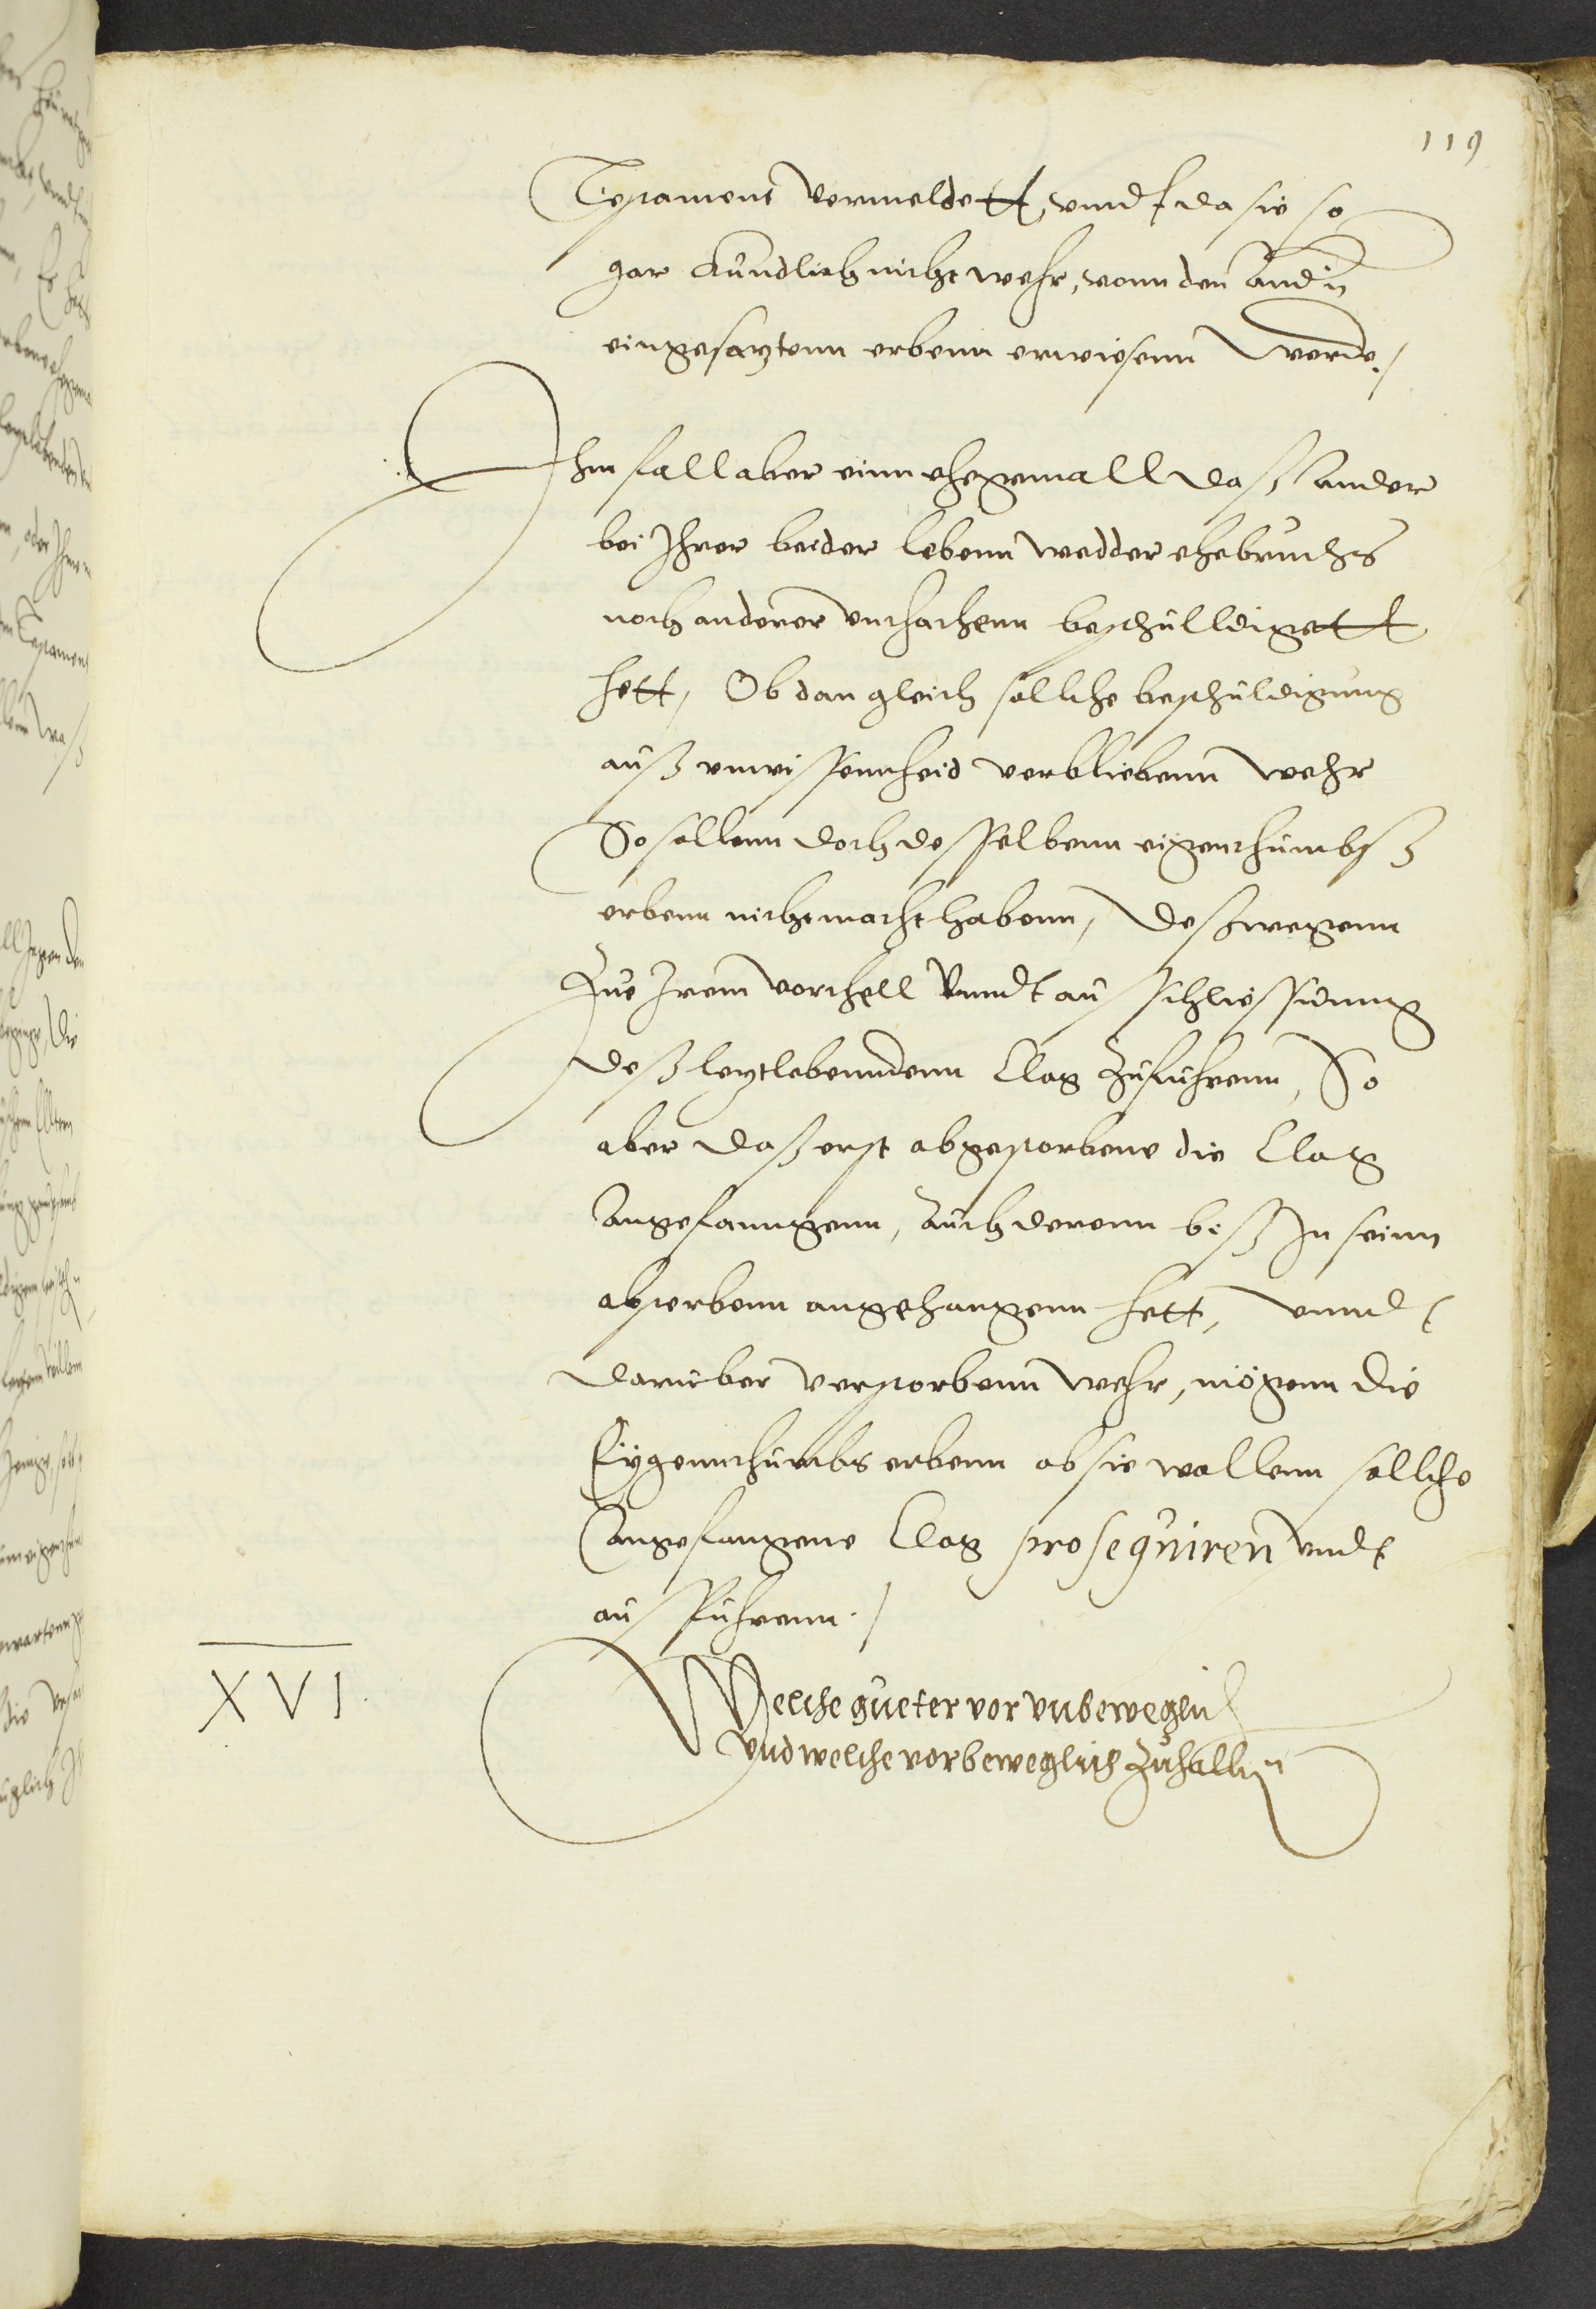 119
Testament vermeldett, vnnd da sie so
gar kundlich nicht wehr, vonn den Andn̄
eingesaztenn erbenn erwiesenn werde./
Ihm fall aber einn ehegemall daß ander
bei Ihrer beider lebenn wedder ehebruchs
noch anderer vrsachenn beschulldigett
hett, Ob dan gleich sollche beschuldigung
auß vnwissennheid verbliebenn wehr
So sollenn doch desselbenn eigenthumbß
erbenn nicht macht habenn, deßwegenn
Zue Irem vorthell Vnndt ausschliessunng
deß leztlebenndenn Clag Zufuhrenn, So
aber daß erst abgestorbene die Clag
Angefanngenn, Auch derenn biß In seinn
absterbenn angehangenn hett, vnndt
daruber verstorbenn wehr, mögenn die
Eygennthumbs erbenn ob sie wollenn sollche
Angefangene Clag prosequiren vndt
ausfuhrenn./
XVI.
Welche gueter vor vnbeweglich
Vnd welche vor beweglich Zuhalltn̄